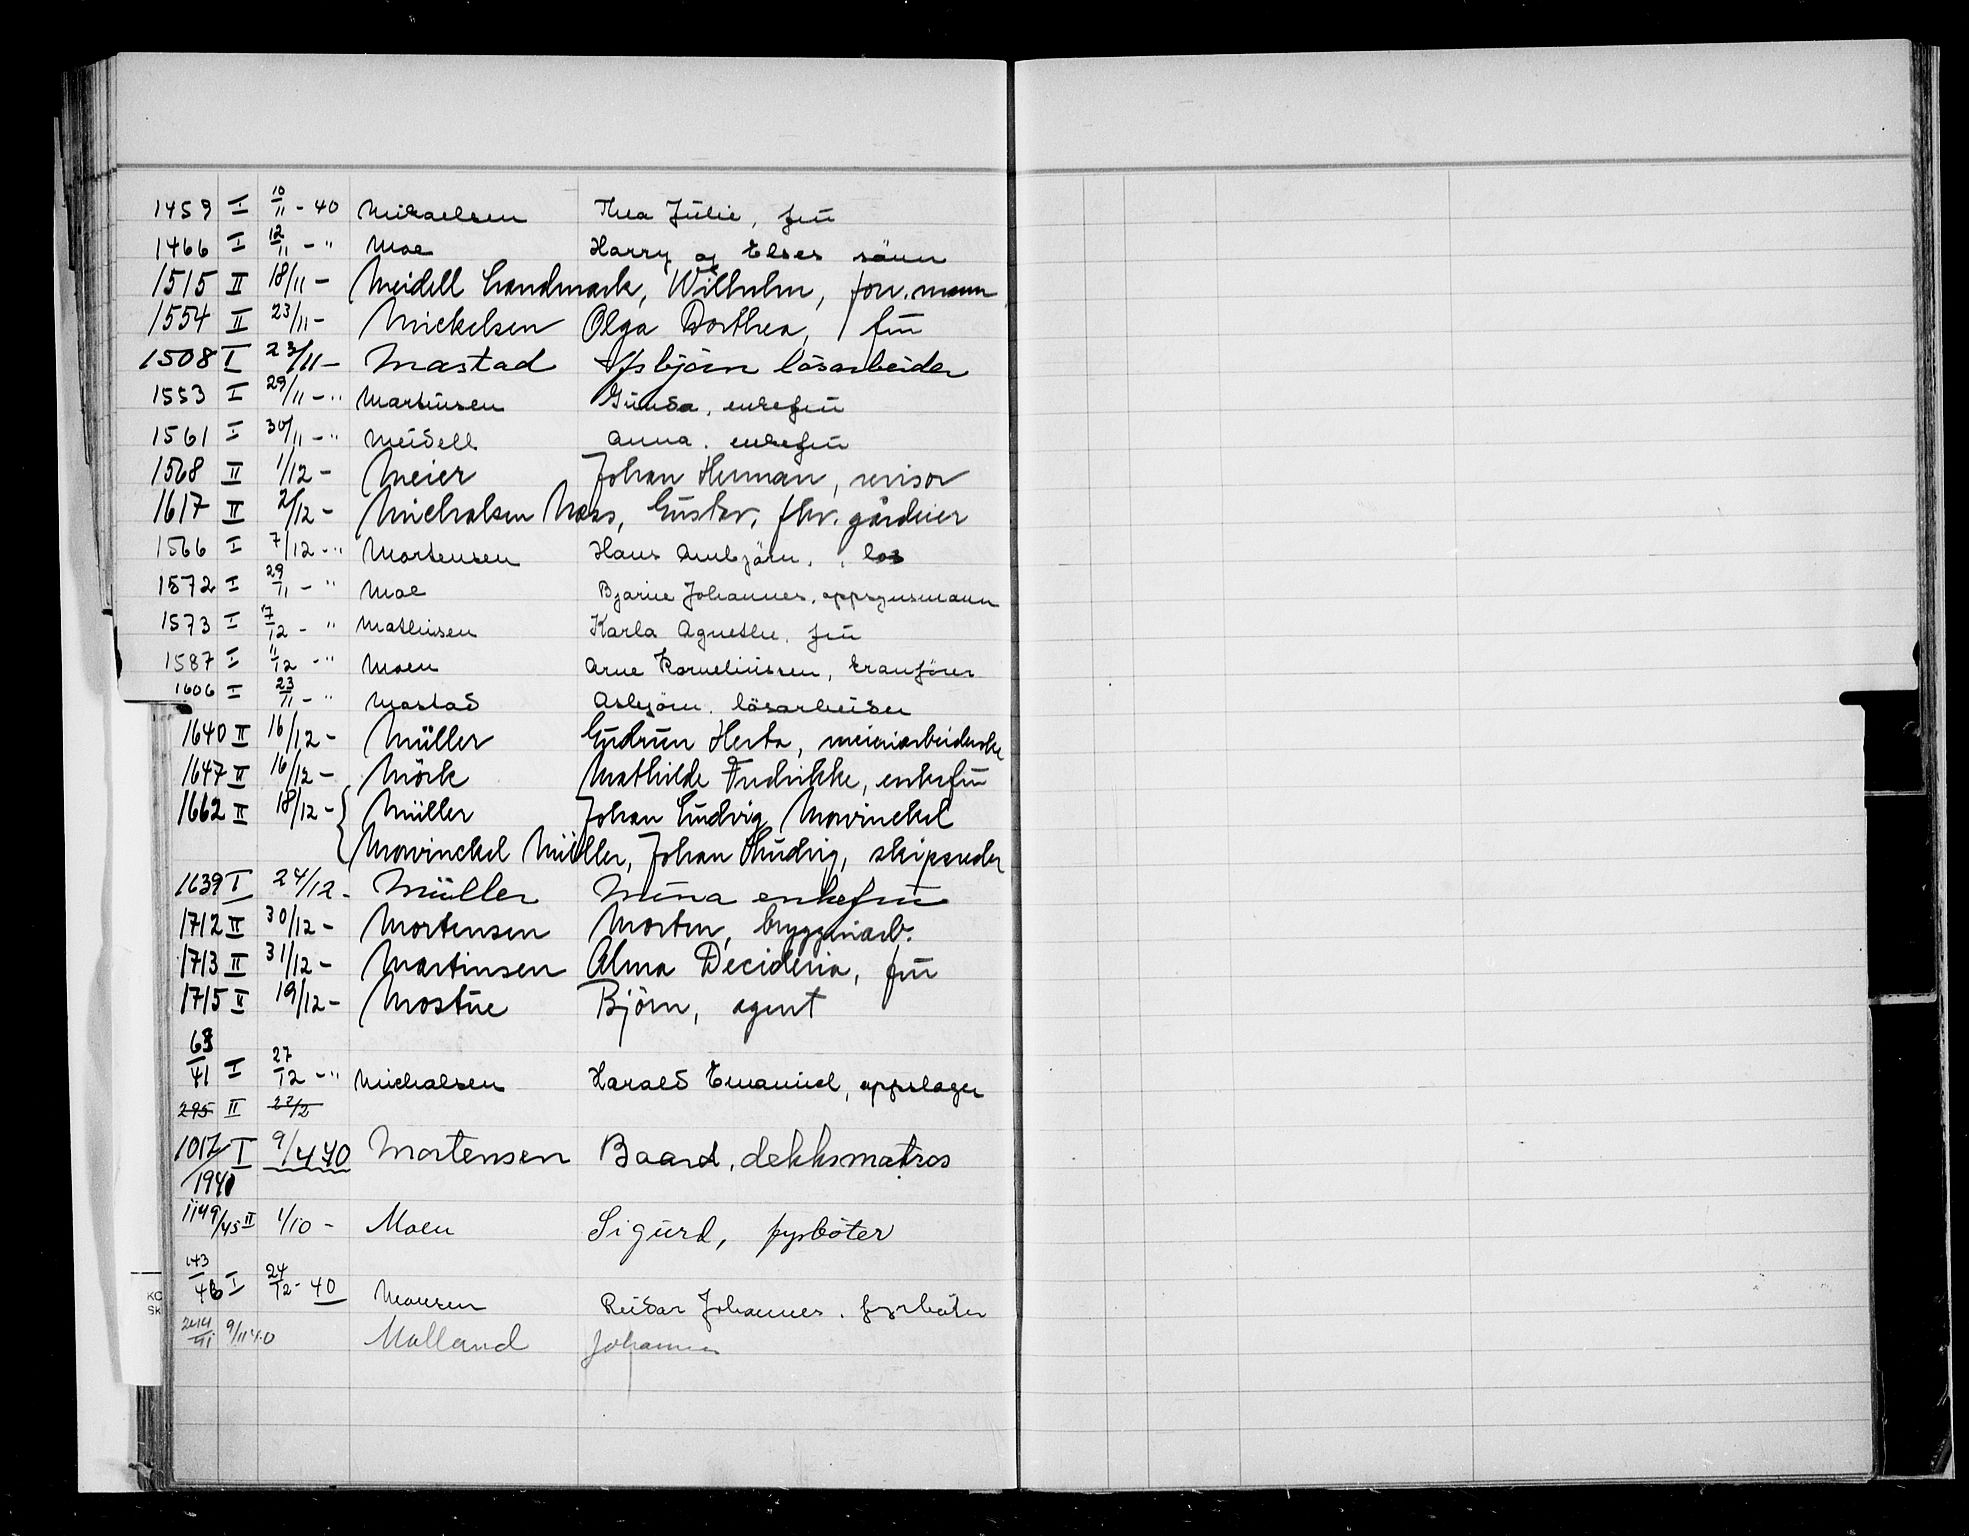 1459 I 10/11 - 40 Mikaelsen Thea Julie, frū
1466 I 12/11 - " Moe Harry og Elses sönn
1515 II 18/11 - Meidell Landmark, Wilhelm, forr.mann
1554 II 23/11 - Mickelsen Olga Dorthea, frū
1508 I 23/11 - Mastad Asbjörn lösarbeider
1553 I 29/11 - " Martinsen Gunda, enkefrū
1561 I 30/11 - " Meidell Anna, enkefrū
1568 II 1/12 - Meier Johan Herman, revisor
1617 II 2/12 - Michalsen Næss, Gūstav, fhv. gårdeier
1566 I 7/12 - " Mortensen Hans Arnbjörn, los
1572 I 29/11 - " Moe Bjarne Johannes, oppsynsmann
1573 I 7/12 - " Mathisen Karla Agnethe, frū
1587 I 11/12 - " Moen Arne Korneliussen, kranförer
1606 I 23/11 - " Mastad Asbjörn, lösarbeider
1640 II 16/12 - Müller Gūdrūn Herta, meieriarbeiderske
1647 II 16/12 - Mörk Mathilde Fredrikke, enkefrū
1662 II 18/12 - { Müller Johan Lūdvig Mowinckel
Mowinckel Müller, Johan Lūdvig, skipsreder
1639 I 24/12 - Müller Mina enkefrū
1712 II 30/12 - Mortensen Morten, bryggeriarb.
1713 II 31/12 - Martinsen Alma Decideria, frū
1715 II 19/12 - Mostūe Björn, agent
63/41 I 27/12 - " Michalsen Harald Emanuel, oppslager
295 II 27/2
1012/1941 I 9/4 40 Mortensen Baard, dekksmatros
1149/45 II 1/10 - Moen Sigūrd, fyrböter
143/46 I 24/12 - 40 Monsen Reidar Johannes, fyrböter
244/41 9/11 40 Molland Johannes